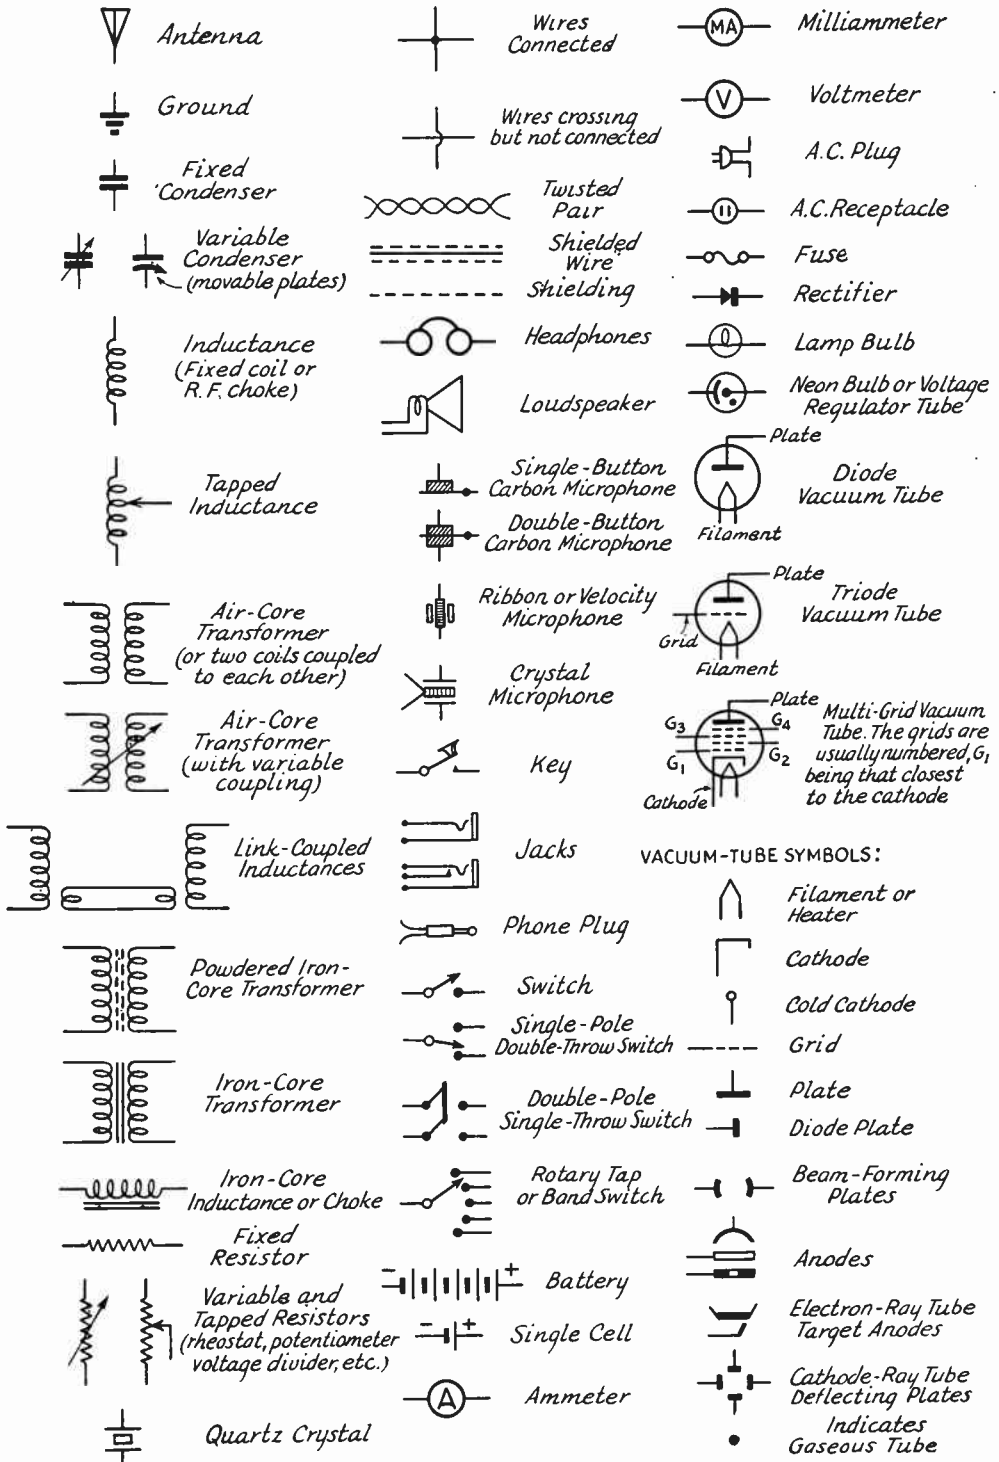 Antenna
Ground
Fixed
Condenser
Variable
Condenser
(movable plates)
Inductance
(Fixed coil or
R.F. choke)
Tapped
Inductance
Air-Core
Transformer
(or two coils coupled
to each other)
Air-Core
Transformer
(with variable
coupling)
Link-Coupled
Inductances
Powdered Iron-
Core Transformer
Iron-Core
Transformer
Iron-Core
Inductance or Choke
Fixed
Resistor
Variable and
Tapped Resistors
(rheostat, potentiometer
voltage divider, etc.)
Quartz Crystal
Wires
Connected
Wires crossing
but not connected
Twisted
Pair
Shielded
Wire
Shielding
Headphones
Loudspeaker
Single-Button
Carbon Microphone
Double-Button
Carbon Microphone
Ribbon or Velocity
Microphone
Crystal
Microphone
Key
Jacks
Phone Plug
Switch
Single-Pole
Double-Throw Switch
Double-Pole
Single-Throw Switch
Rotary Tap
or Band Switch
- + Battery
- + Single Cell
A Ammeter
MA Milliammeter
V Voltmeter
A.C. Plug
A.C. Receptacle
Fuse
Rectifier
Lamp Bulb
Neon Bulb or Voltage
Regulator Tube
Plate
Diode
Vacuum Tube
Filament
Plate
Triode
Vacuum Tube
Grid
Filament
Plate
G3 G4
G1 G2
Cathode
Multi-Grid Vacuum
Tube. The grids are
usually numbered, G1
being that closest
to the cathode
VACUUM-TUBE SYMBOLS:
Filament or
Heater
Cathode
Cold Cathode
Grid
Plate
Diode Plate
Beam-Forming
Plates
Anodes
Electron-Ray Tube
Target Anodes
Cathode-Ray Tube
Deflecting Plates
Indicates
Gaseous Tube